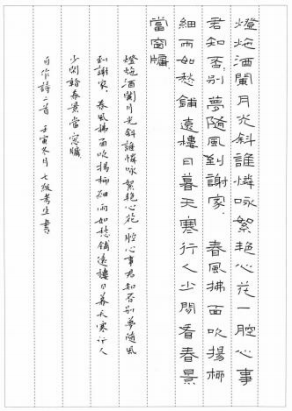 燈炧酒闌月光斜誰憐詠絮艷心花一腔心事
君知否別夢隨風到謝家 春風拂面吹揚柳
細雨如愁鋪遠樓日暮天寒行人少閒看春景
當窗牖
燈炧酒闌月光斜誰憐詠絮艷心花一腔心事君知否別夢隨風
到謝家 春風拂面吹揚柳細雨如愁鋪遠樓日暮天寒行人
少閒看春景當窗牖
自作詩二首 壬寅冬月 七 書